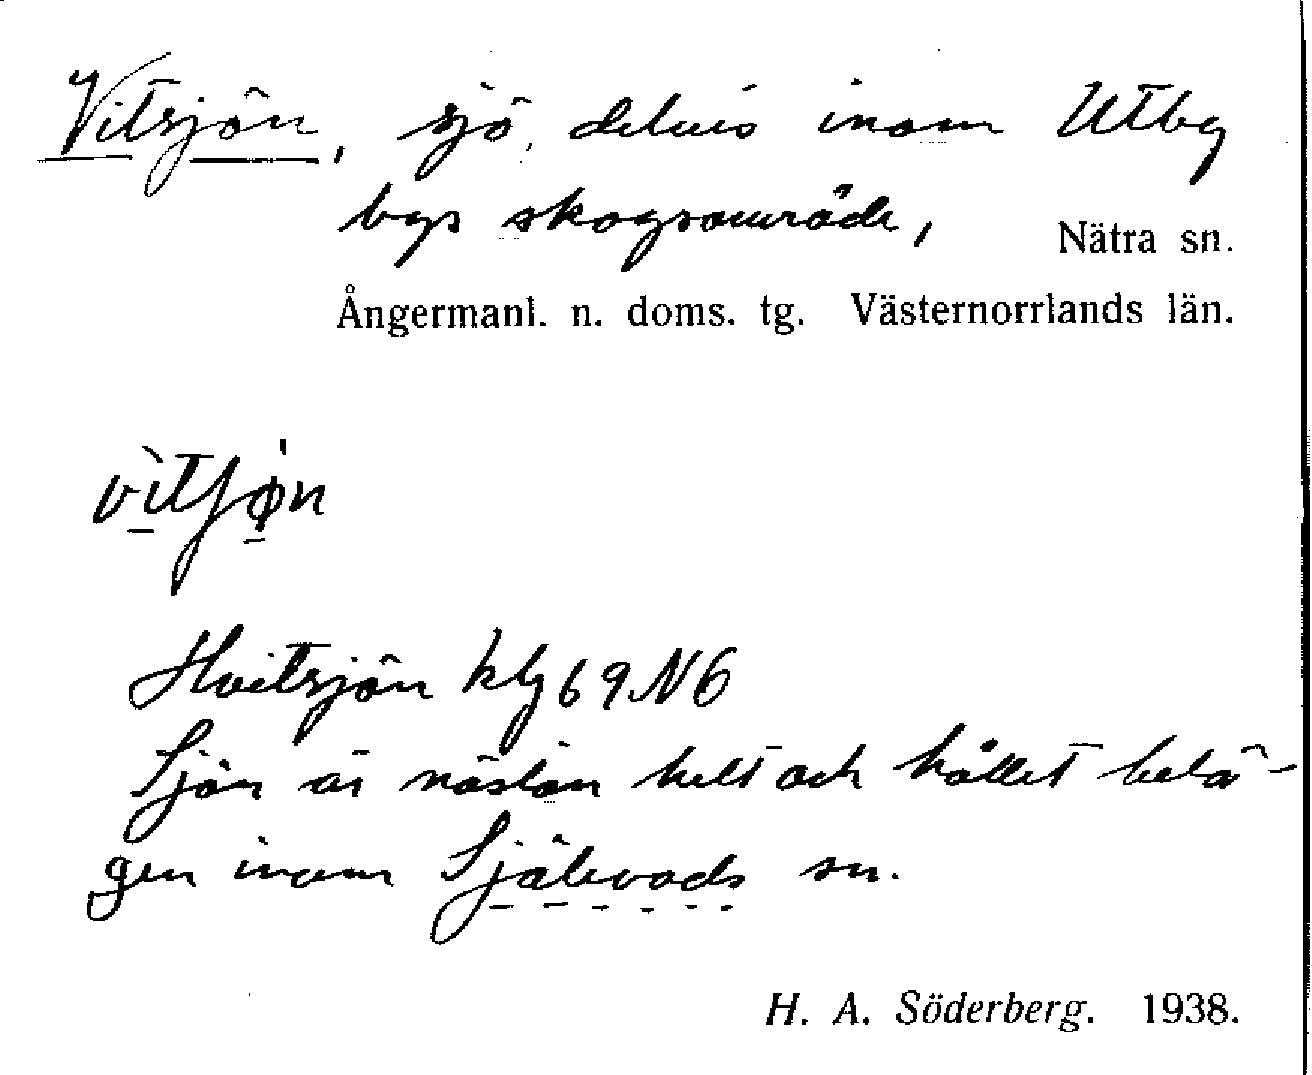 Vitsjön, sjö, delvis inom Utby
bys skogsområde, Nätra sn.
Ångermanl. n. doms. tg. Västernorrlands län.
vìtʃø̀n
Hvitsjön klg 69 N6
Sjön är nästan helt och hållet belä-
gen inom Själevads sn.
H. A. Söderberg. 1938.